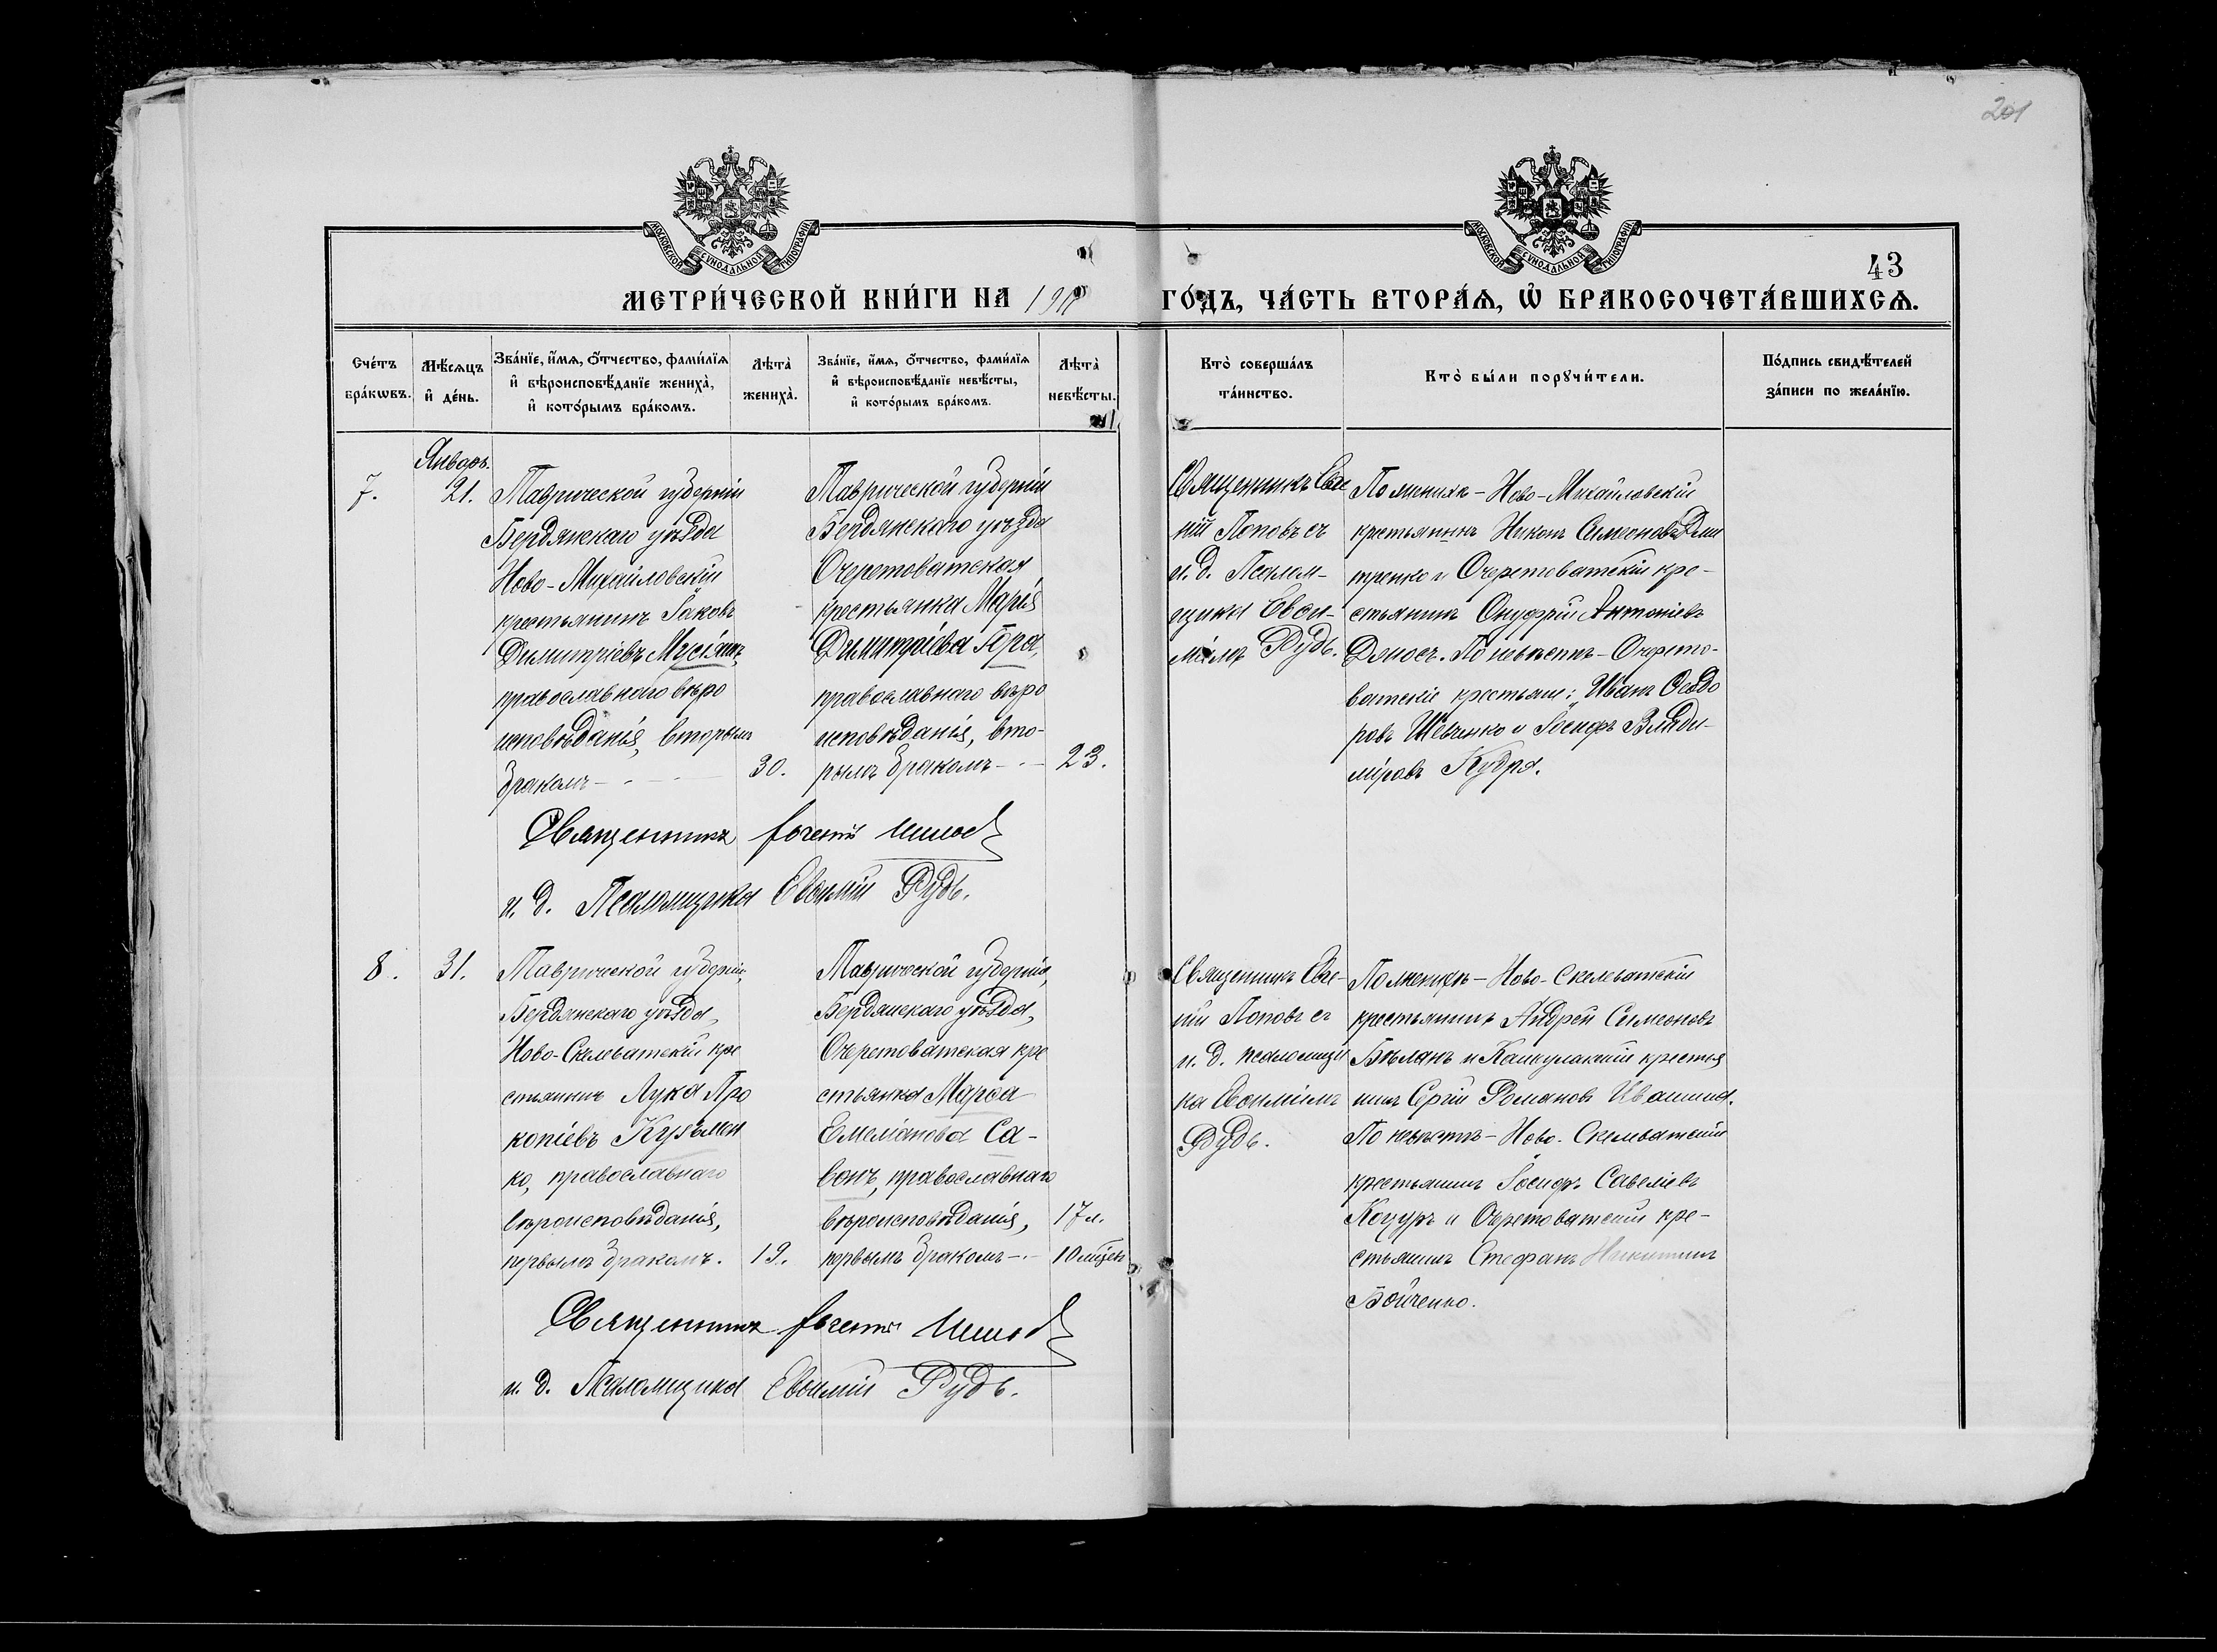 201
43
МЕТРИ́ЧЕСКОЙ КНИ́ГИ НА 191 ГО́ДЪ, ЧА́СТЬ ВТОРА́Ѧ, Ѡ҆ БРАКОСОЧЕТА́ВШИХСѦ.
Сче́тъ бра́кѡвъ.
Мѣ́сѧцъ и҆ де́нь.
Зва́нїе, и҆́мѧ, ѻ҆́тчество, фами́лїѧ
и҆ вѣроисповѣ́данїе жениха̀,
и҆ кото́рымъ бра́комъ.
Лѣта̀ жениха̀.
Зва́нїе, и҆́мѧ, ѻ҆́тчество, фами́лїѧ
и҆ вѣроисповѣ́данїе невѣ́сты,
и҆ кото́рымъ бра́комъ.
Лѣта̀ невѣ́сты.
Кто̀ соверша́лъ
та́инство.
Кто̀ бы́ли порꙋчи́тели.
По́дпись свидѣ́телей
за́писи по жела́нїю.
Январь.
7.
21.
Таврической губерніи
Бердянскаго уѣзда
Ново-Михайловскій
крестьянинъ Іаковъ
Димитріевъ Мусіякъ,
православнаго вѣро
исповѣданія, вторымъ
бракомъ
30.
Таврической губерніи
Бердянскаго уѣзда
Очеретоватская
крестьянка Марія
Димитріева Гора,
православнаго вѣро
исповѣданія, вто-
рымъ бракомъ
23.
Священникъ Евге
ній Поповъ съ
и. д. Псалом-
щика Евѳи-
міемъ Рудь.
По женихѣ - Ново-Михайловскій
крестьянинъ Никонъ Симеоновъ Дми
тренко и Очеретоватскій кре-
стьянинъ Онуфрій Антоніевъ
Дяносъ. По невѣстѣ - Очерето-
ватскіе крестьяне: Иванъ Ѳеодо
ровъ Шевченко и Іосифъ Влади-
міровъ Кудра.
Священникъ Евгеній Поповъ
и. д. Псаломщика Евѳимій Рудь.
8.
31.
Таврической губерніи,
Бердянскаго уѣзда,
Ново-Скелеватскій кре
стьянинъ Лука Про
копіевъ Кузьмен
ко, православнаго
вѣроисповѣданія,
первымъ бракомъ.
19.
Таврической губерніи,
Бердянскаго уѣзда,
Очеретоватская кре
стьянка Марѳа
Емеліанова Са-
вонъ, православнаго
вѣроисповѣданія,
первымъ бракомъ
17 л.
10 мѣсец
Священникъ Евге-
ній Поповъ съ
и. д. псаломщи
ка Евѳиміемъ
Рудь.
По женихѣ - Ново-Скелеватскій
крестьянинъ Андрей Симеоновъ
Бѣланъ и Канкулакскій крестья
нинъ Сергій Романовъ Ивашина.
По невѣстѣ - Ново-Скелеватскій
крестьянинъ Іосифъ Савеліевъ
Коцуръ и Очеретоватскій кре-
стьянинъ Стефанъ Никитинъ
Бойченко.
Священникъ Евгеній Поповъ
и. д. Псаломщика Евѳимій Рудь.